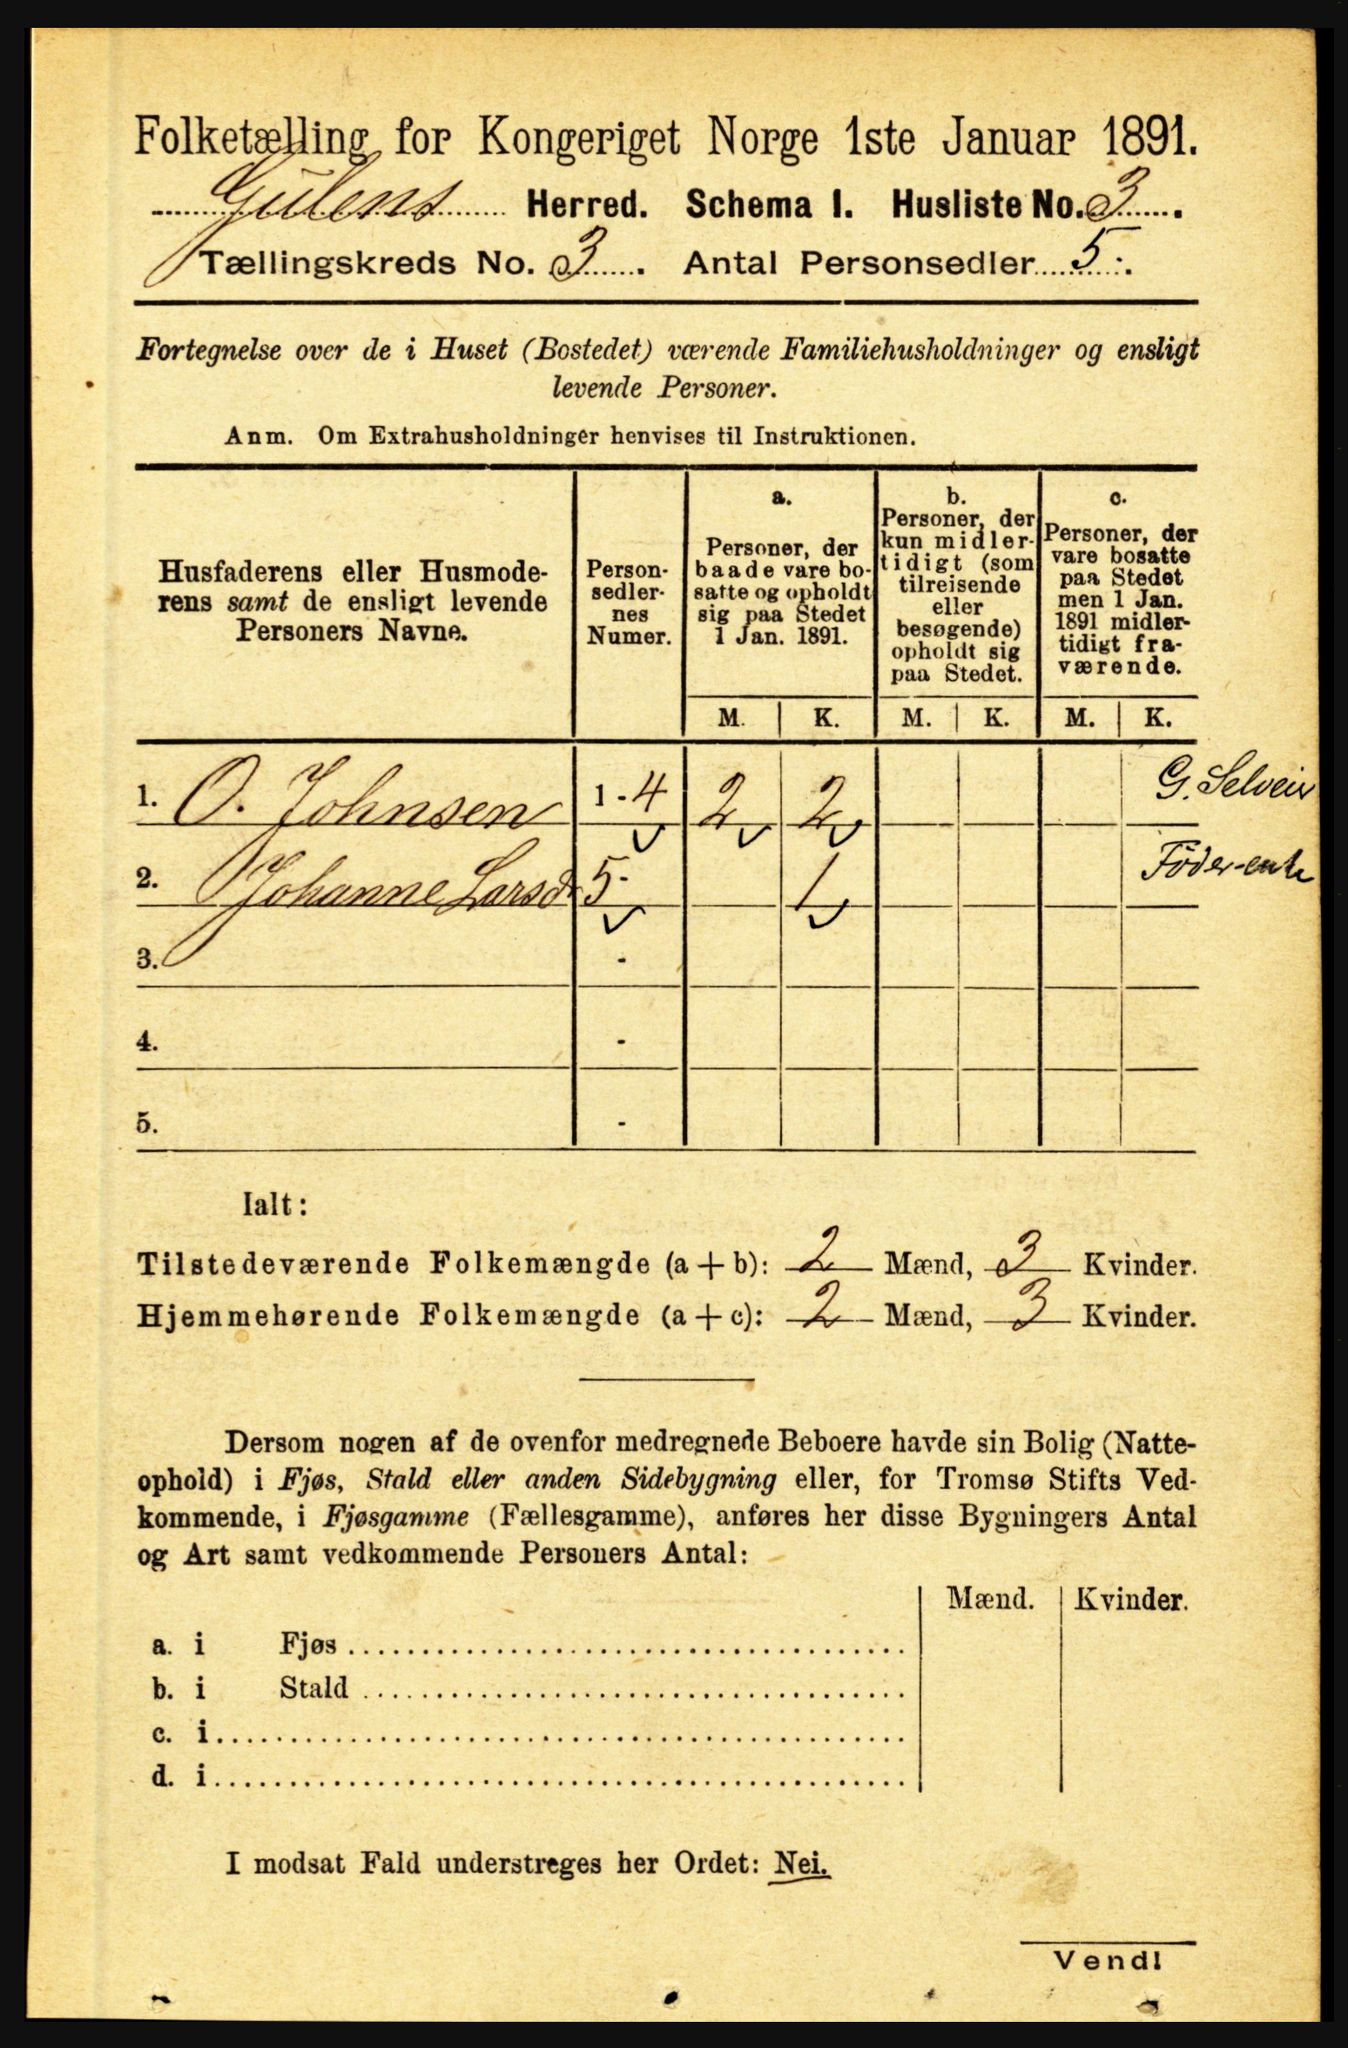 Folketælling for Kongeriget Norge 1ste Januar 1891.
Gulens Herred. Schema I. Husliste No. 3.
Tællingskreds No. 3. Antal Personsedler 5.
Fortegnelse over de i Huset (Bostedet) værende Familiehusholdninger og ensligt
levende Personer.
Anm. Om Extrahusholdninger henvises til Instruktionen.
Husfaderens eller Husmode-
rens samt de ensligt levende
Personers Navne.
Person-
sedler-
nes
Numer.
a.
Personer, der
baade vare bo-
satte og opholdt
sig paa Stedet
1 Jan. 1891.
b.
Personer, der
kun midler-
tidigt (som
tilreisende
eller
besøgende)
opholdt sig
paa Stedet.
c.
Personer, der
vare bosatte
paa Stedet
men 1 Jan.
1891 midler-
tidigt fra-
værende.
M. K. M. K. M. K.
1. O. Johnsen 1 - 4 2 2 G. Selveier
2. Johanne Larsd. 5 - 1 Föder-enke
3. -
4. -
5. -
Ialt:
Tilstedeværende Folkemængde (a + b): 2 Mænd, 3 Kvinder.
Hjemmehørende Folkemængde (a + c): 2 Mænd, 3 Kvinder.
Dersom nogen af de ovenfor medregnede Beboere havde sin Bolig (Natte-
ophold) i Fjøs, Stald eller anden Sidebygning eller, for Tromsø Stifts Ved-
kommende, i Fjøsgamme (Fællesgamme), anføres her disse Bygningers Antal
og Art samt vedkommende Personers Antal:
Mænd. Kvinder.
a. i Fjøs
b. i Stald
c. i
d. i
I modsat Fald understreges her Ordet: Nei.
Vend!